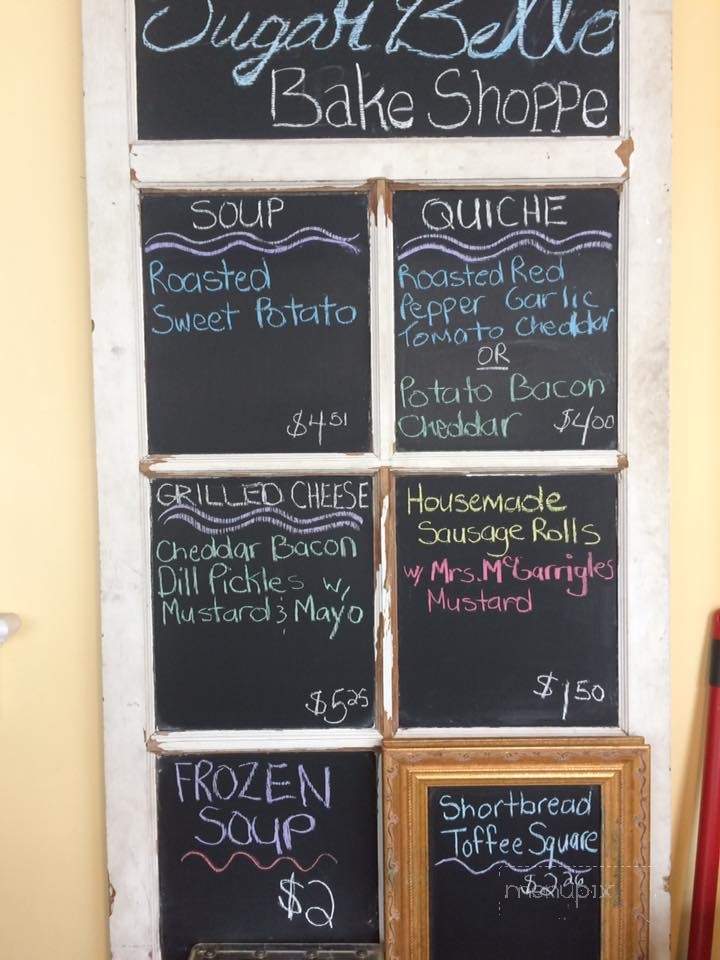 Sugar Belle
Bake Shoppe
SOUP
Roasted
Sweet Potato
$4.51
QUICHE
Roasted Red
Pepper Garlic
Tomato Cheddar
OR
Potato Bacon
Cheddar $4.00
GRILLED CHEESE
Cheddar Bacon
Dill Pickles w/
Mustard & Mayo
$5.25
Housemade
Sausage Rolls
w/ Mrs. McGarrigles
Mustard
$1.50
FROZEN
SOUP
$2
Shortbread
Toffee Square
$2.26
menupix